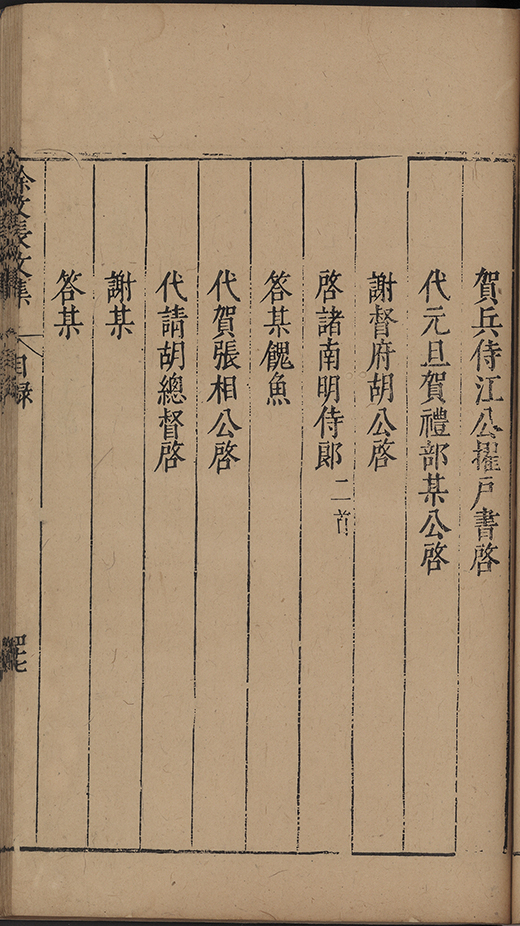 賀兵侍江公擢戶書啓
代元旦賀禮部某公啓
謝督府胡公啓
啓諸南明侍郎 二首
答某餽魚
代賀張相公啓
代請胡總督啓
謝某
答某
徐文長文集 目録